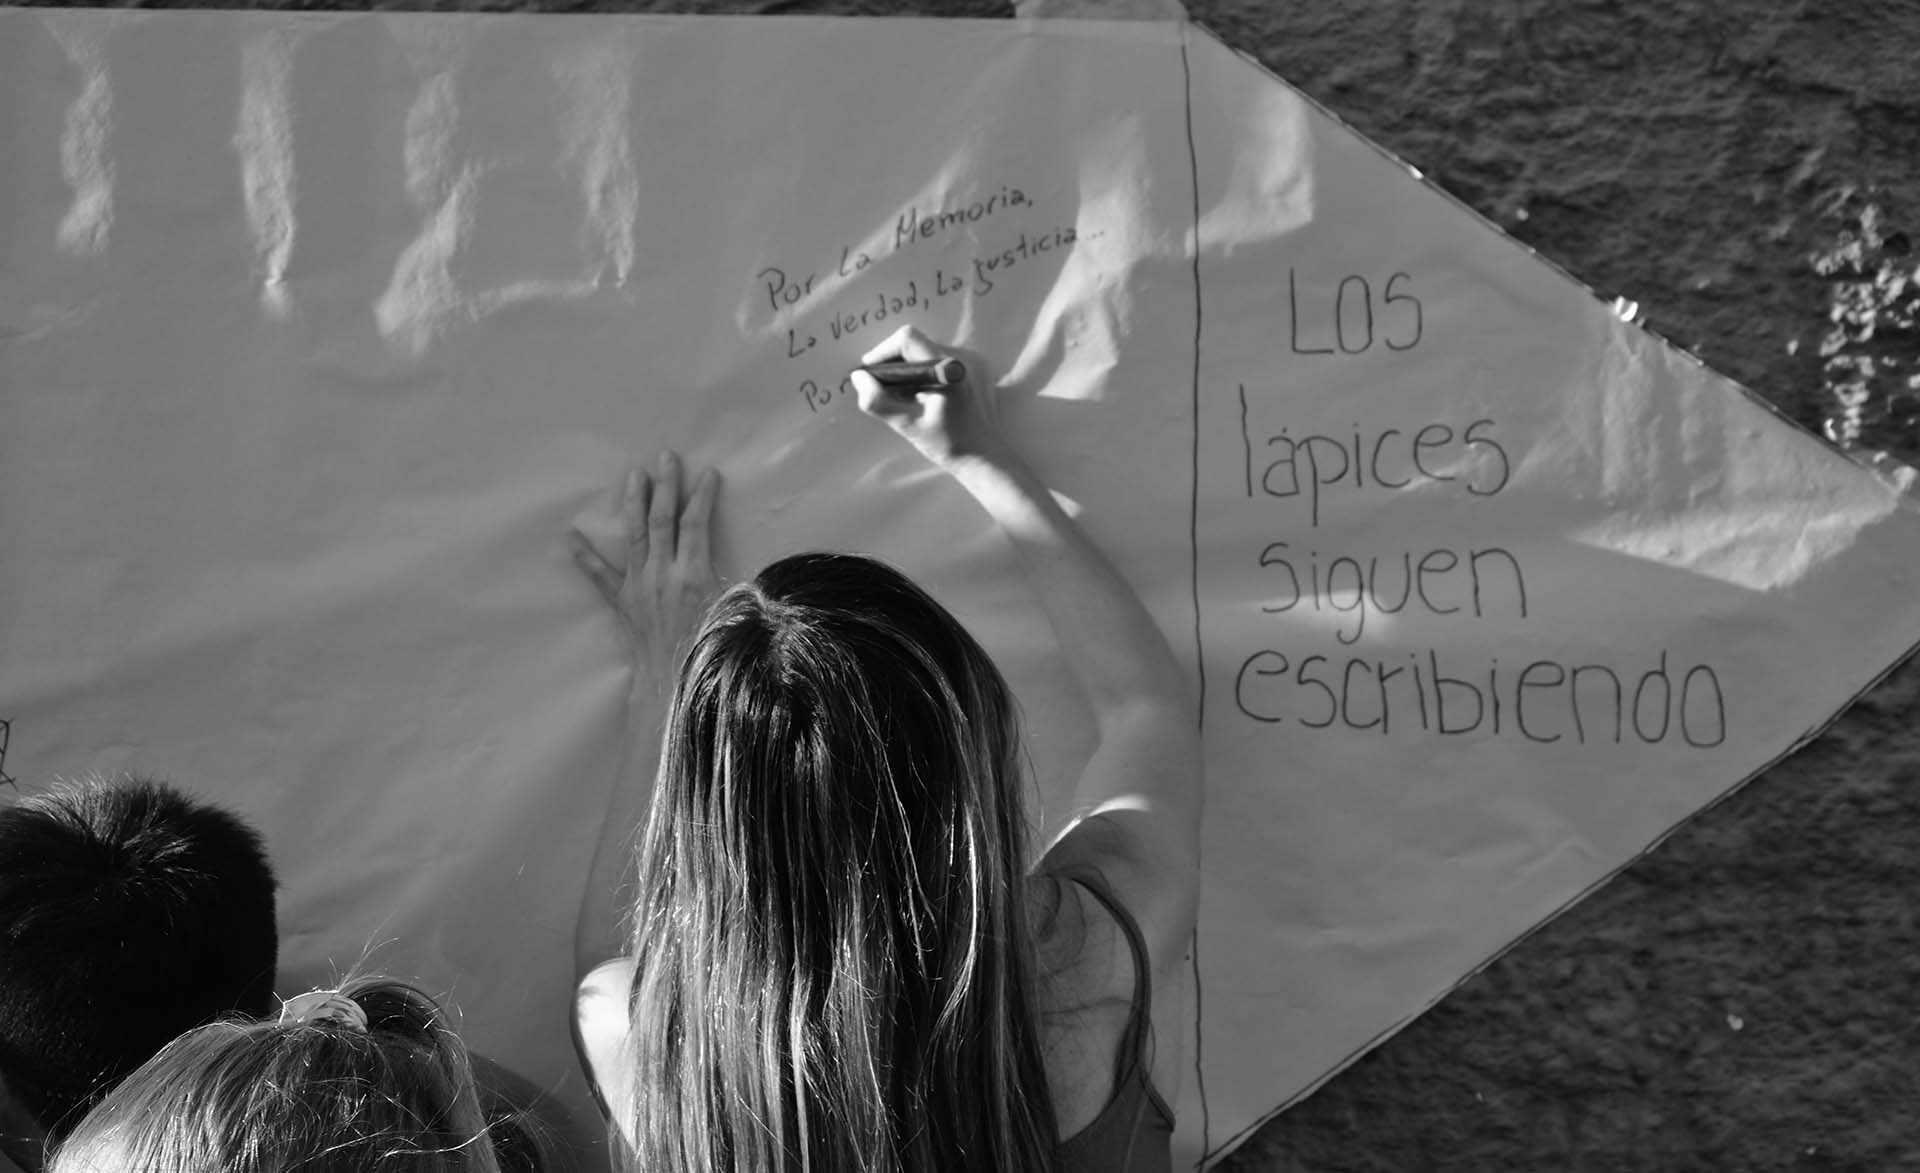 Por la Memoria,
La Verdad, la justicia...
Por
Los
lápices
siguen
escribiendo